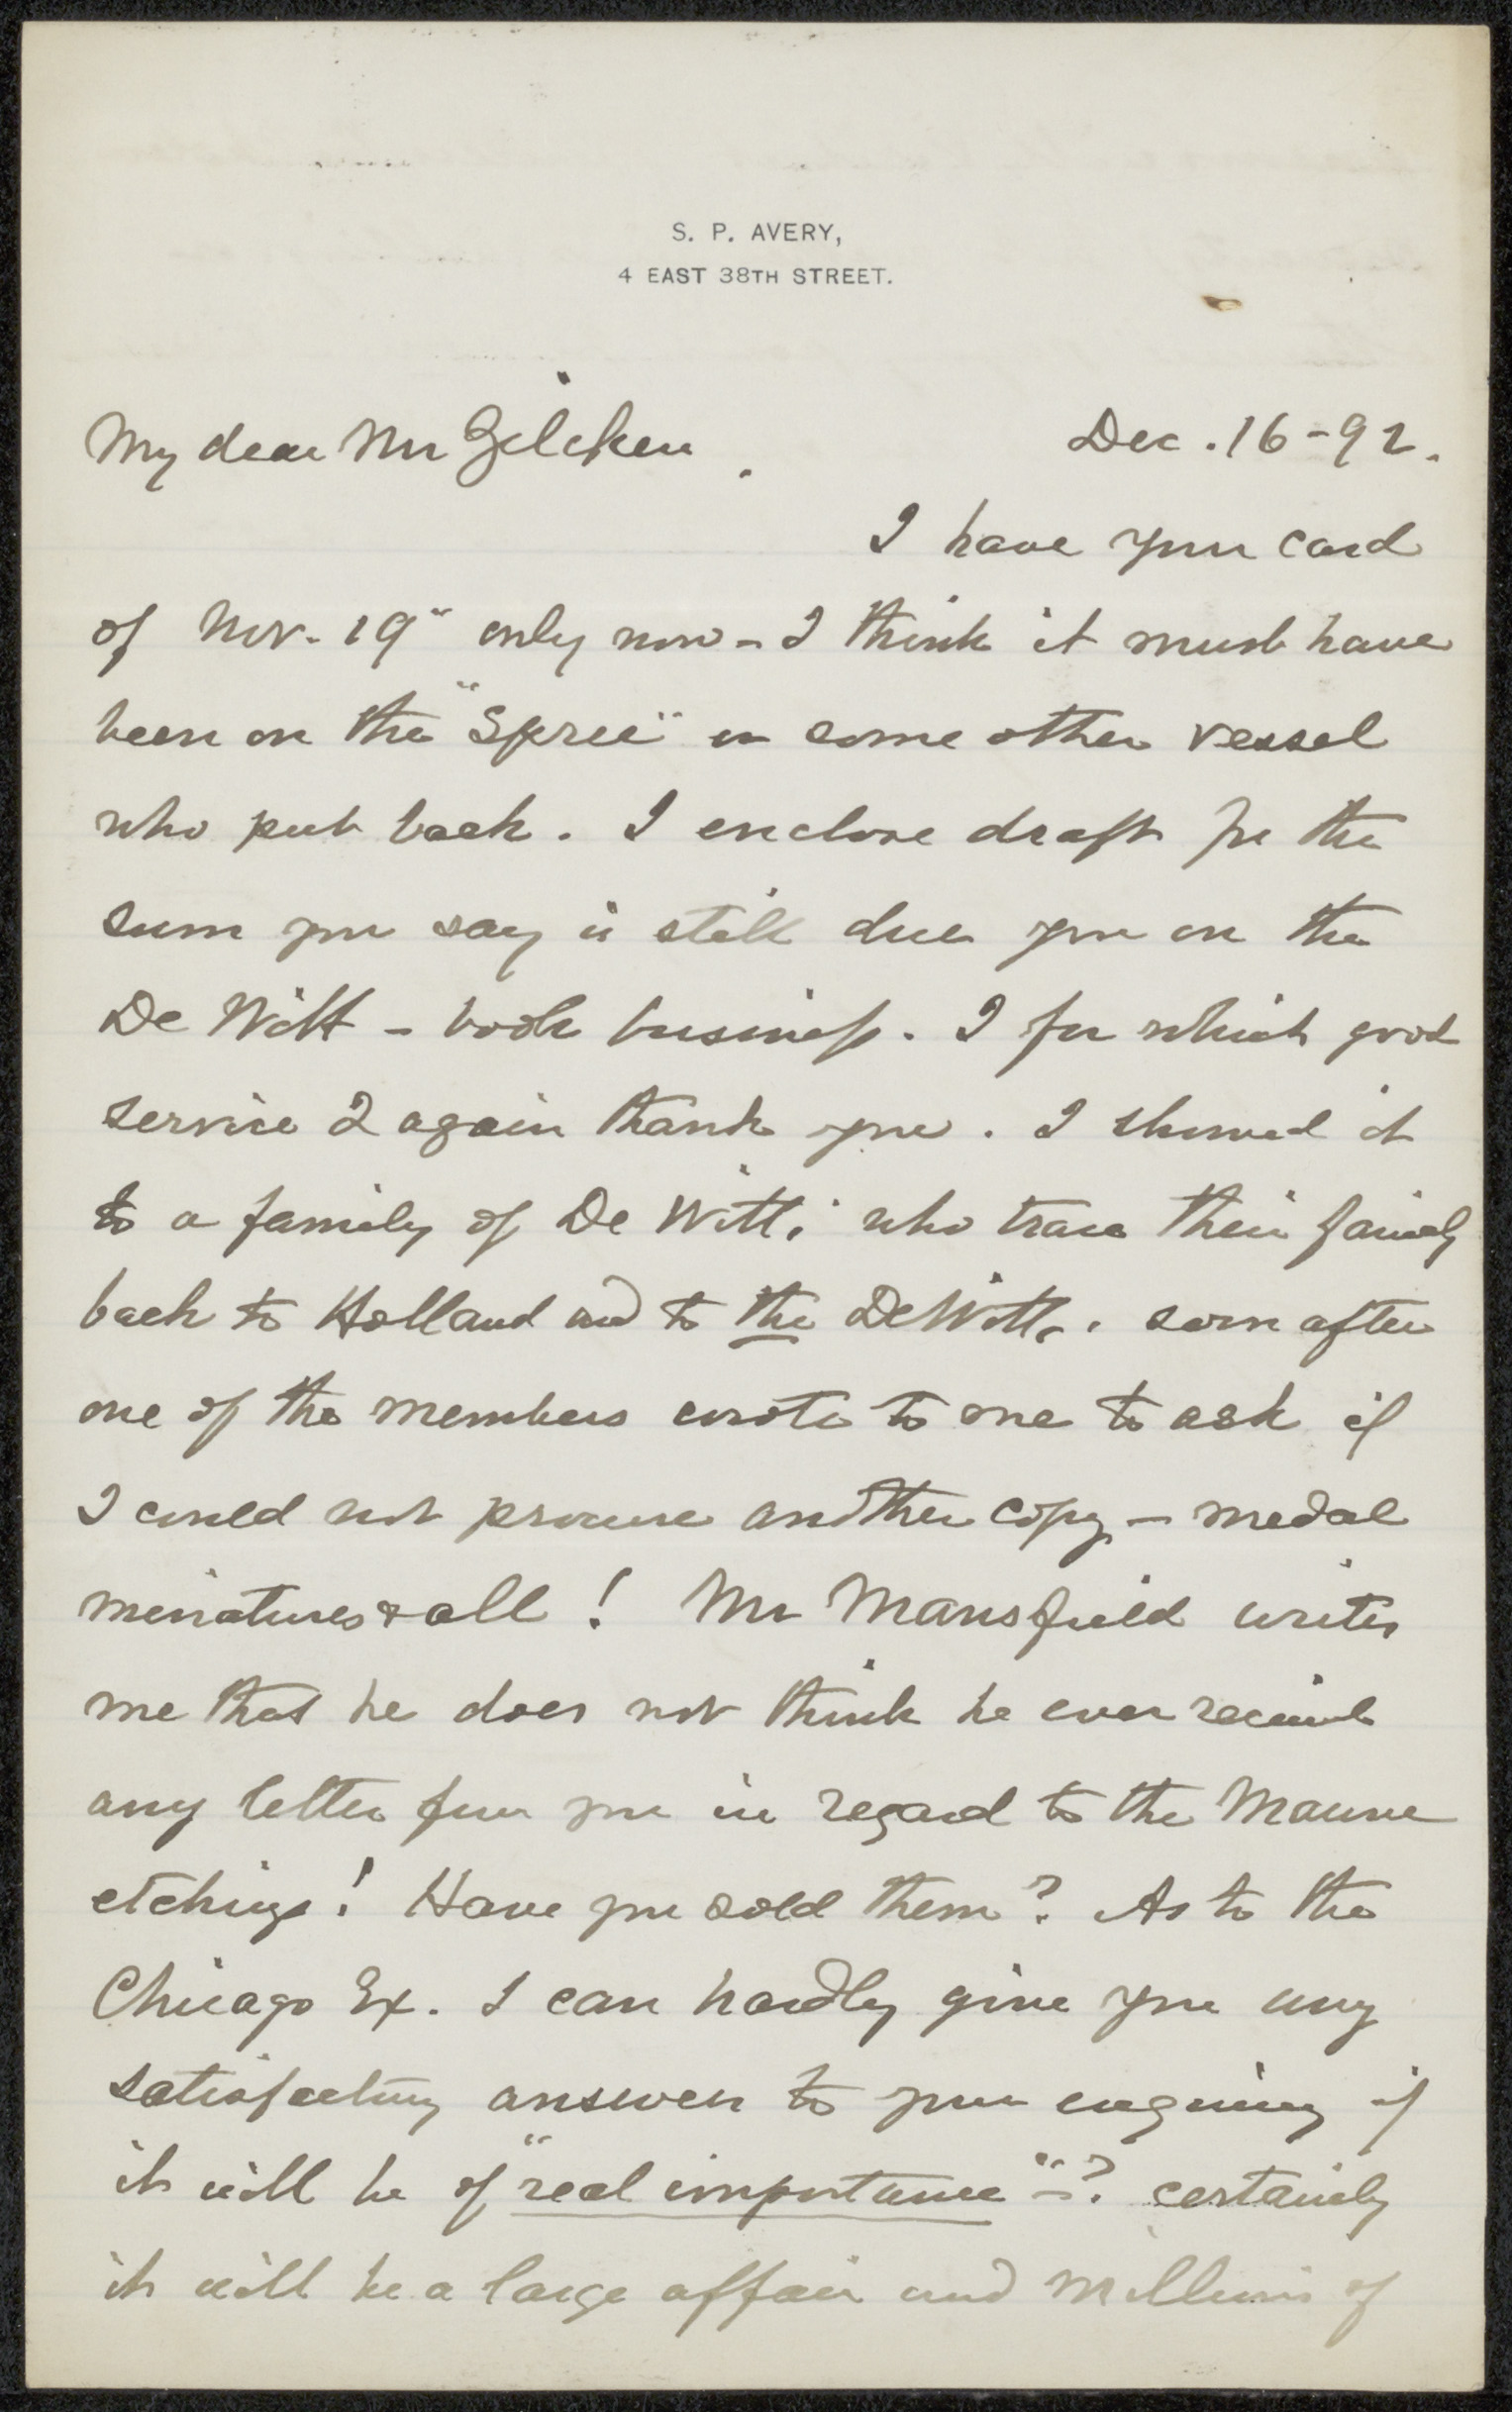 S. P. AVERY,
4 EAST 38TH STREET.
My dear Mr Zilcken.
Dec. 16-92.
I have your card
of Nov. 19" only now - I think it must have
been on the "Spree" or some other vessel
who put back. I enclose draft for the
sum you say is still due you on the
De Witt - book business. I for which good
service I again thank you. I showed it
to a family of De Witts who trace their family
back to Holland and to the DeWitts. soon after
one of the members wrote to me to ask if
I could not procure another copy - medal
meniatures & all! Mr Mansfield writes
me that he does not think he ever received
any letter from you in regard to the Mauve
etchings! Have you sold them? As to the
Chicago Ex. I can hardly give you any
satisfactory answer to your enquiry if
it will be of "real importance" -? certainly
it will be a large affair and millions of